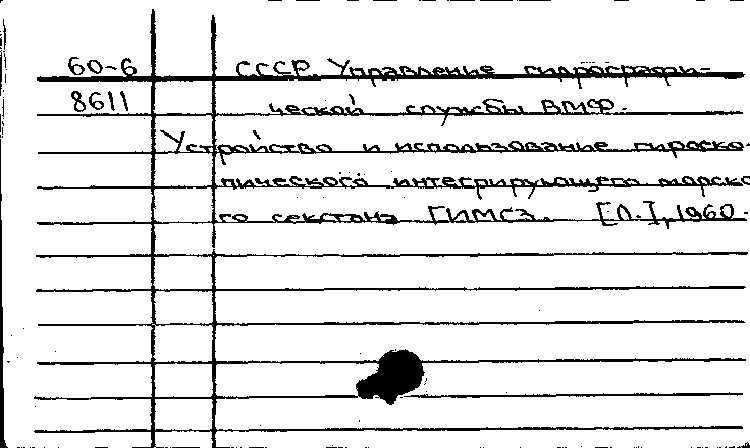 60-6 СССР. Управление гидрографи-
8611 ческой службы ВМФ.
Устройство и использование гироско-
пического интегрирующего морско-
го секстана ГИМС3. [Л.], 1960.